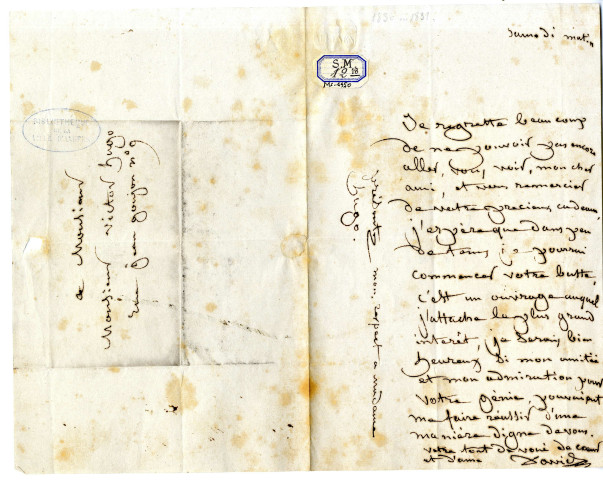 samedi matin
S.M
MS. 4450
Je regrette beaucoup
de ne pouvoir pas encore
aller, vous, voir, mon cher
ami, et vous remercier
de votre precieux cadeau,
j'espere que dans peu
de tems je pourrai
commencer votre buste,
c'est un ouvrage auquel
j'attache la plus grand
interêt, je serais bien
heureux si mon amitié
et mon admiration pour
votre génie, pouvaient
me faire réussir d'une
maniere digne de vous.
votre tout dévoué de coeur
et d'ame David
présentez mon respect a madame
hugo.
a Monsieur
Monsieur victor hugo
rue jean goujon n° 9